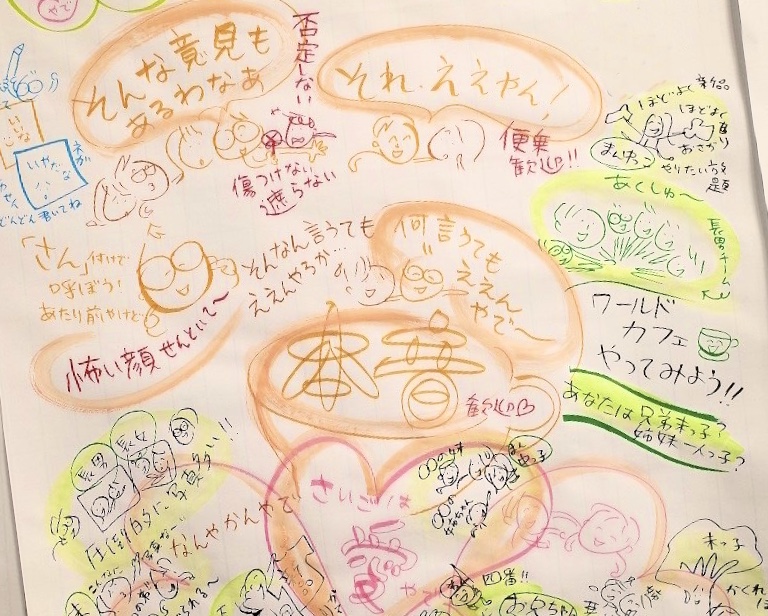 そんな意見も
あるわなぁ
否定しない
それ、ええやん!
便乗
歓迎!!
傷つけない
遮らない
ほどよく
ほどよく
やりたい放
題
あくしゅ〜
長男チーム
いやだな
どんどん書いてね
「さん」付けで
呼ぼう!
あたり前やけど
そんなん言うても
ええんやろか…
何言うても
ええん
やで〜
怖い顔せんといて〜
本音
歓迎
ワールド
カフェ
やってみよう!!
あなたは兄弟末っ子?
姉妹一人っ子?
長男
長女
圧倒的に
写真多い!!
なんやかんやで
さいごは
愛
やで
〇〇の妹
四番!!
お兄ちゃん
末っ子